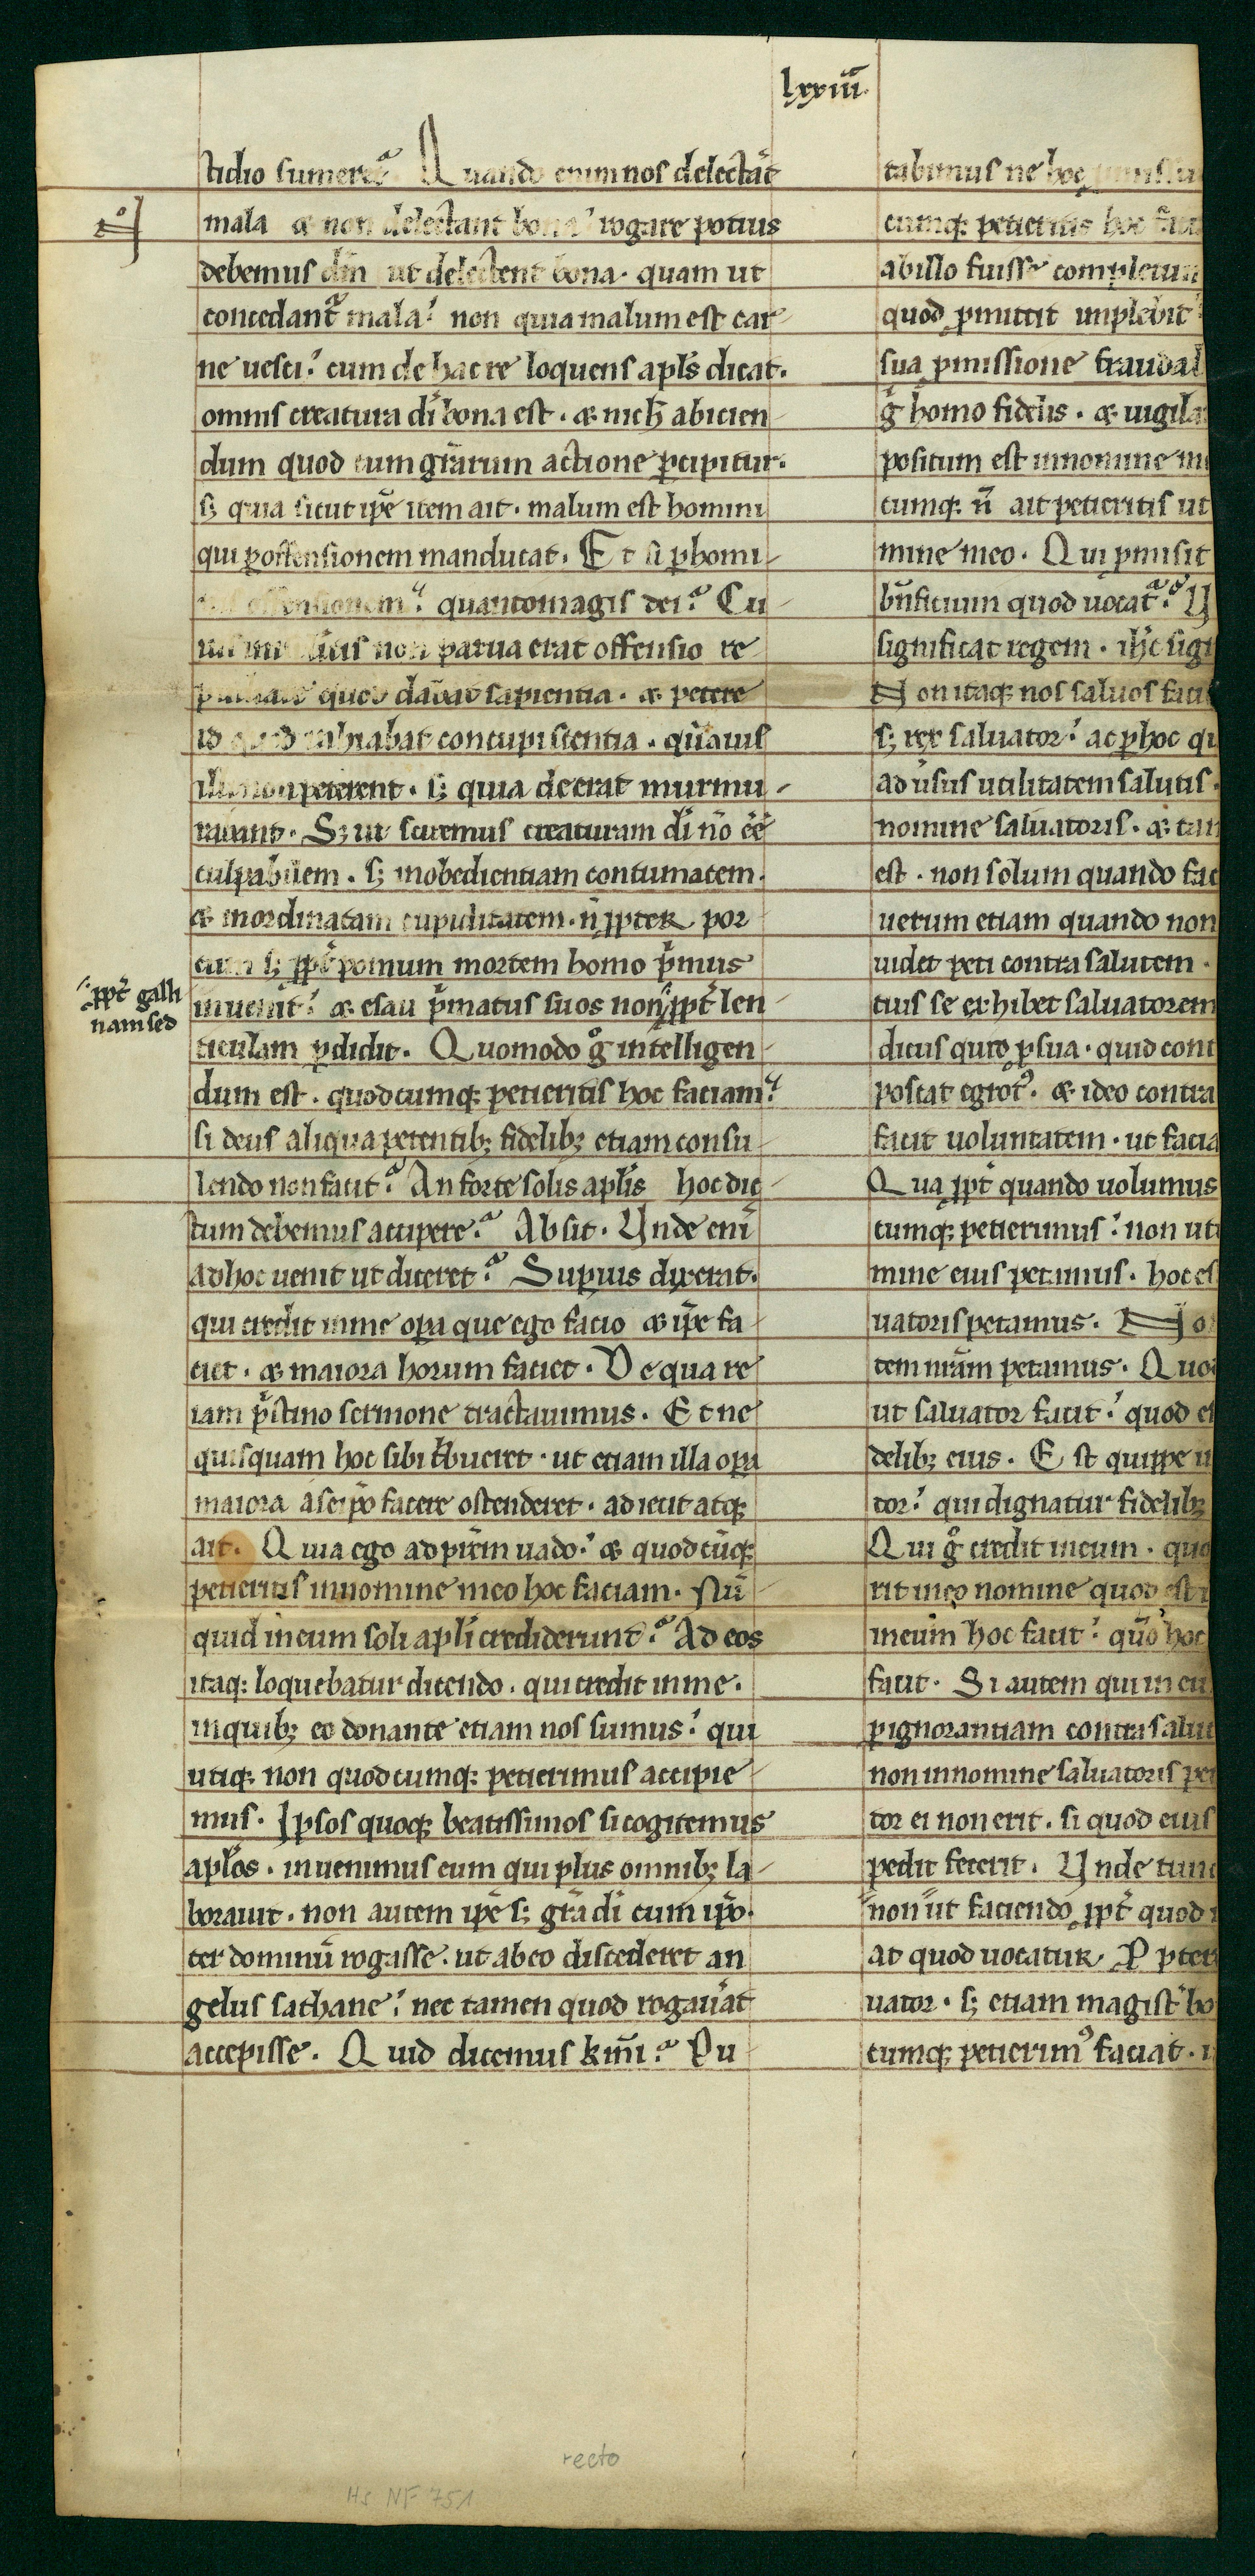 lxxiiii.
tidio sumeret᷎? Quando enim nos delectāt
mala & non delectant bona? rogare potius
debemus dm̄ ut delectent bona. quam ut
concedant᷎ mala? non quia malum est car-
ne uesci? cum de hac re loquens apl̄s dicat.
omnis creatura di̅ bona est. & nich̄ abicien-
dum quod cum gr̄arum actione ꝑcipitur.
sꝫ quia sicut ip̄e item ait. malum est homini
qui ꝑ offensionem manducat. Et si ꝑ homi-
offensionem? quantomagis dei? Cu-
non parua erat offensio re
quod dabat sapientia. & petere
id quod inhiabat concupiscentia. quāuis
illi non peterent. sꝫ quia deerat murmu-
rarent. Sꝫ ut sciremus creaturam di̅ nō eē
culpabilem. sꝫ inobedientiam contumacem.
& inordinatam cupiditatem. n̄ ꝓpter por-
cum sꝫ ꝓpt̄ pomum mortem homo pͥmus
inuenit? & esau pͥmatus suos non ꝓpt̄ len-
ꝓpt̄ galli
nam sed
ticulam ꝑdidit. Quomodo gͦ intelligen-
dum est. quodcumqꝫ petieritis hoc faciam?
si deus aliqua petentibꝫ fidelibꝫ etiam consu-
lendo non facit? An forte solis apl̄is hoc dic-
tum debemus accipere? Absit. Unde eni̅
ad hoc uenit ut diceret? Supius dixerat.
qui credit in me oꝑa que ego facio & ip̄e fa-
ciet. & maiora horum faciet. De qua re
iam pͥstino sermone tractauimus. Et ne
quisquam hoc sibi tͥbueret. ut etiam illa oꝑa
maiora a seip̄o facere ostenderet. adiecit atqꝫ
ait. Quia ego ad pr̄em uado? & quodcūqꝫ
petieritis in nomine meo hoc faciam. Nū-
quid in eum soli apl̄i crediderunt? Ad eos
itaqꝫ loquebatur dicendo. qui credit in me.
in quibꝫ eo donante etiam nos sumus? qui
utiqꝫ non quodcumqꝫ petierimus accipie-
mus. Ipsos quoqꝫ beatissimos si cogitemus
apl̄os. inuenimus eum qui plus omnibꝫ la-
borauit. non autem ip̄e sꝫ gr̄a di̅ cum ip̄o.
ter dominū rogasse. ut ab eo discederet an-
gelus sathane? nec tamen quod rogauāt
accepisse. Quid dicemus km̄i? Pu-
tabimus ne hoc
cumqꝫ petieritis hoc
ab illo fuisse completum
quod ꝓmittit implebit
sua ꝓmissione fraudab
gͦ homo fidelis. & uigila
positum est in nomine m
cumqꝫ n̄ ait petieritis ut
mine meo. Qui ꝓmisit
bn̄ficium quod uocat᷎?
significat regem. ih̄c sig
Non itaqꝫ nos saluos faci
sꝫ rex saluator? ac ꝑ hoc q
ad usus utilitatem salutis.
nomine saluatoris. & tam
est. non solum quando fac
uerum etiam quando non
uidet peti contra salutem.
cius se exhibet saluatorem
dicus quid ꝓ sua. quid cont
poscat egrotꝰ. & ideo contra
facit uoluntatem. ut facia
Qua ꝓpt̄ quando uolumus
cumqꝫ petierimus? non ut
mine eius petimus. hoc es
uatoris petamus. No
tem nr̄am petamus. Quo
ut saluator facit? quod e
delibꝫ eius. Est quippe
tor? qui dignatur fidelibꝫ
Qui gͦ credit in eum. quo
rit in eo nomine quod est
in eum hoc facit? qūo hoc
facit. Si autem qui in eu
ꝑ ignorantiam contra salut
non in nomine saluatoris pe
tor ei non erit. si quod eius
pedit fecerit. Unde tunc
non ut faciendo ꝓpt̄ quod
at quod uocatur. Ppter
uator. sꝫ etiam magist̄ bo
cumqꝫ petierimꝰ faciat.
recto
Hs NF 751